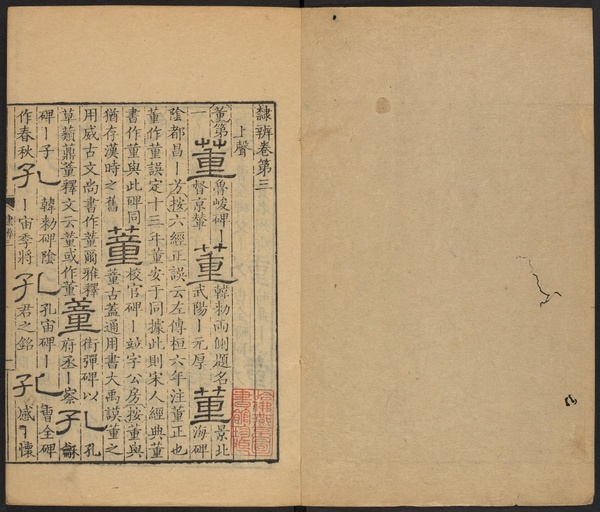 隸辨卷第三
上聲
董第一 董 魯峻碑丨督京輦丨 董 韓勑兩側題名武陽丨元厚 董 景北海碑
陰都昌丨芳按六經正誤云左傳桓六年注董正也
董作董誤定十三年董安于同據此則宋人經典董
書作董與此碑同 董 校官碑丨竝字公房按董與
猶存漢時之舊 董古蓋通用書大禹謨董之
用威古文尚書作董爾雅釋 街彈碑以 孔 孔
草蘱薡董釋文云董或作董 董 府丞丨察 孔 龢
碑丨子 孔 韓勑碑陰 孔 孔宙碑丨 孔 曹全碑
作春秋 孔 丨宙季將 孔 君之銘 孔 感丨懷